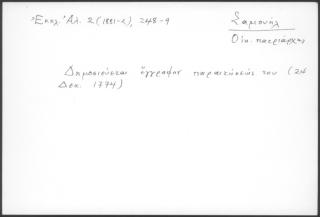 Ἐκκλ. Ἀλ. 2 (1881-2), 248-9
Σαμουήλ
Οἰκ. πατριάρχης
Δημοσιεύεται ἔγγραφον παραιτήσεώς του (24
Δεκ. 1774)